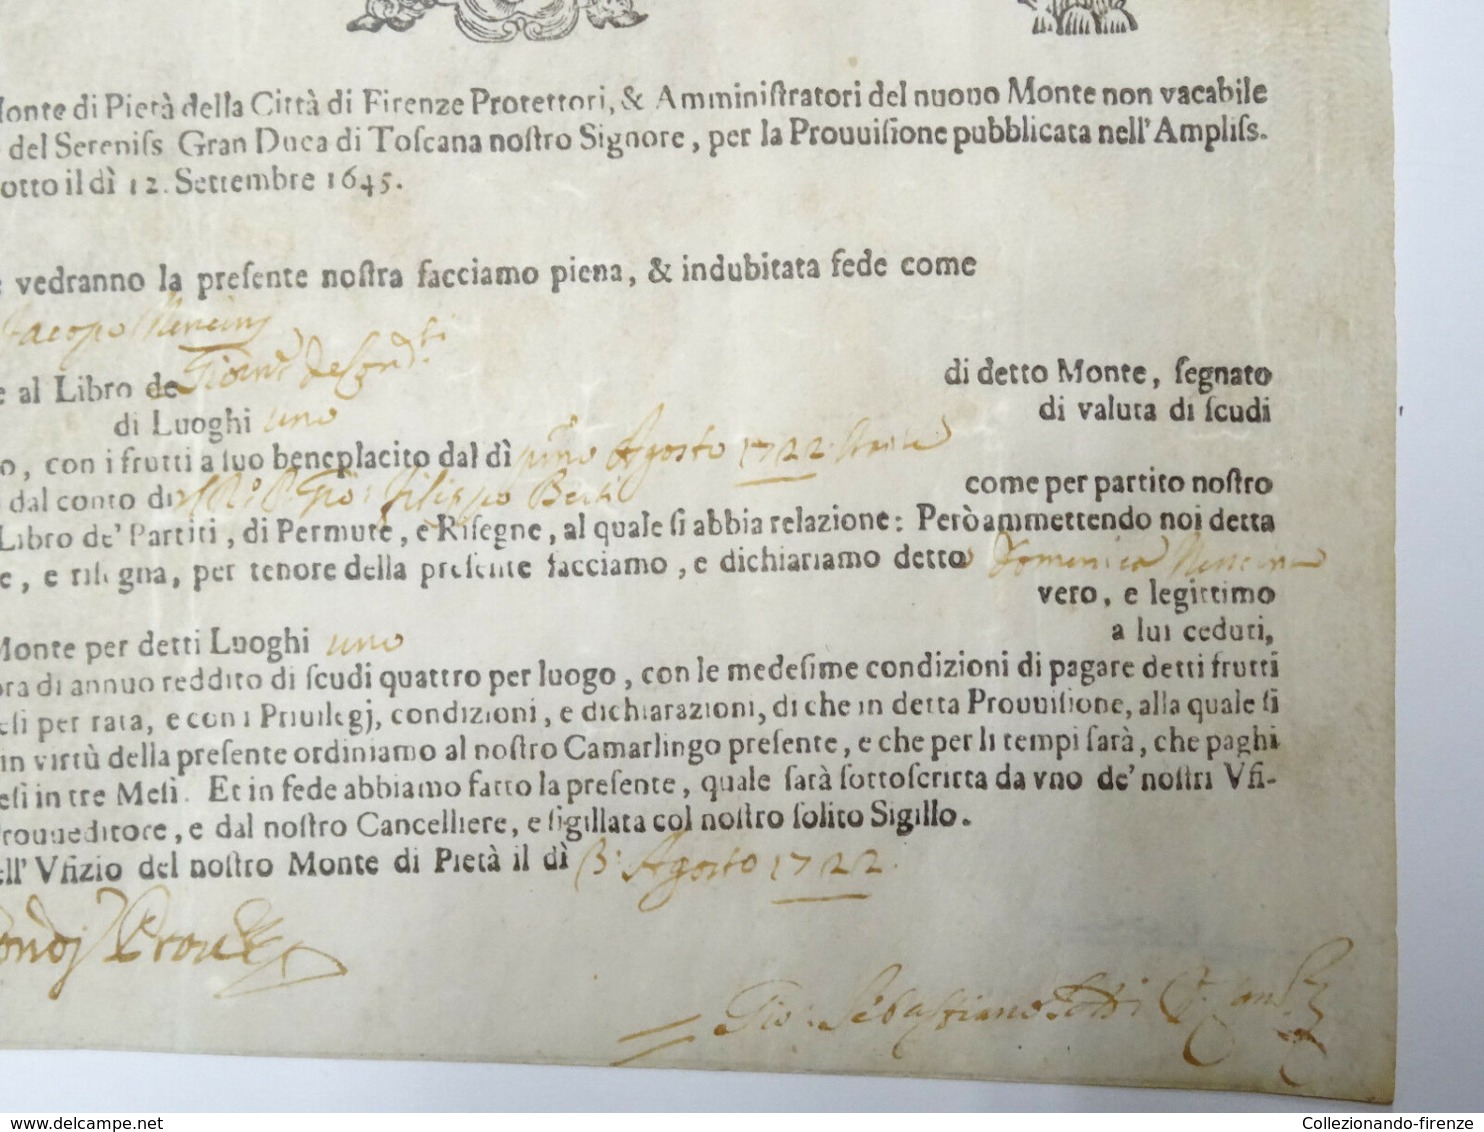 Monte di Pietà della Città di Firenze Protettori, & Amminiſtratori del nuouo Monte non vacabile
del Sereniſs Gran Duca di Toſcana noſtro Signore, per la Prouuiſione pubblicata nell'Ampliſs.
otto il dì 12. Settembre 1645.
e vedranno la preſente noſtra facciamo piena, & indubitata fede come
Jacopo Nencini
e al Libro de di detto Monte, ſegnato
di Luoghi uno di valuta di ſcudi
o, con i frutti a ſuo beneplacito dal dì pmo Agosto 1722
dal conto di Gio: Filippo Berti come per partito noſtro
Libro de' Partiti, di Permute, e Riſegne, al quale ſi abbia relazione: Però ammettendo noi detta
e, e riſegna, per tenore della preſente facciamo, e dichiariamo detto Domenico Nencini
vero, e legittimo
Monte per detti Luoghi uno a lui ceduti,
ora di annuo reddito di ſcudi quattro per luogo, con le medeſime condizioni di pagare detti frutti
eſi per rata, e con i Priuilegj, condizioni, e dichiarazioni, di che in detta Prouuiſione, alla quale ſi
in virtù della preſente ordiniamo al noſtro Camarlingo preſente, e che per li tempi ſarà, che paghi
eſi in tre Meſi. Et in fede abbiamo fatto la preſente, quale ſarà ſottoſcritta da vno de' noſtri Vfi-
rouueditore, e dal noſtro Cancelliere, e ſigillata col noſtro ſolito Sigillo.
ell' Vfizio del noſtro Monte di Pietà il dì 3: Agosto 1722.
Gio: Sebastiano
Collezionando-firenze